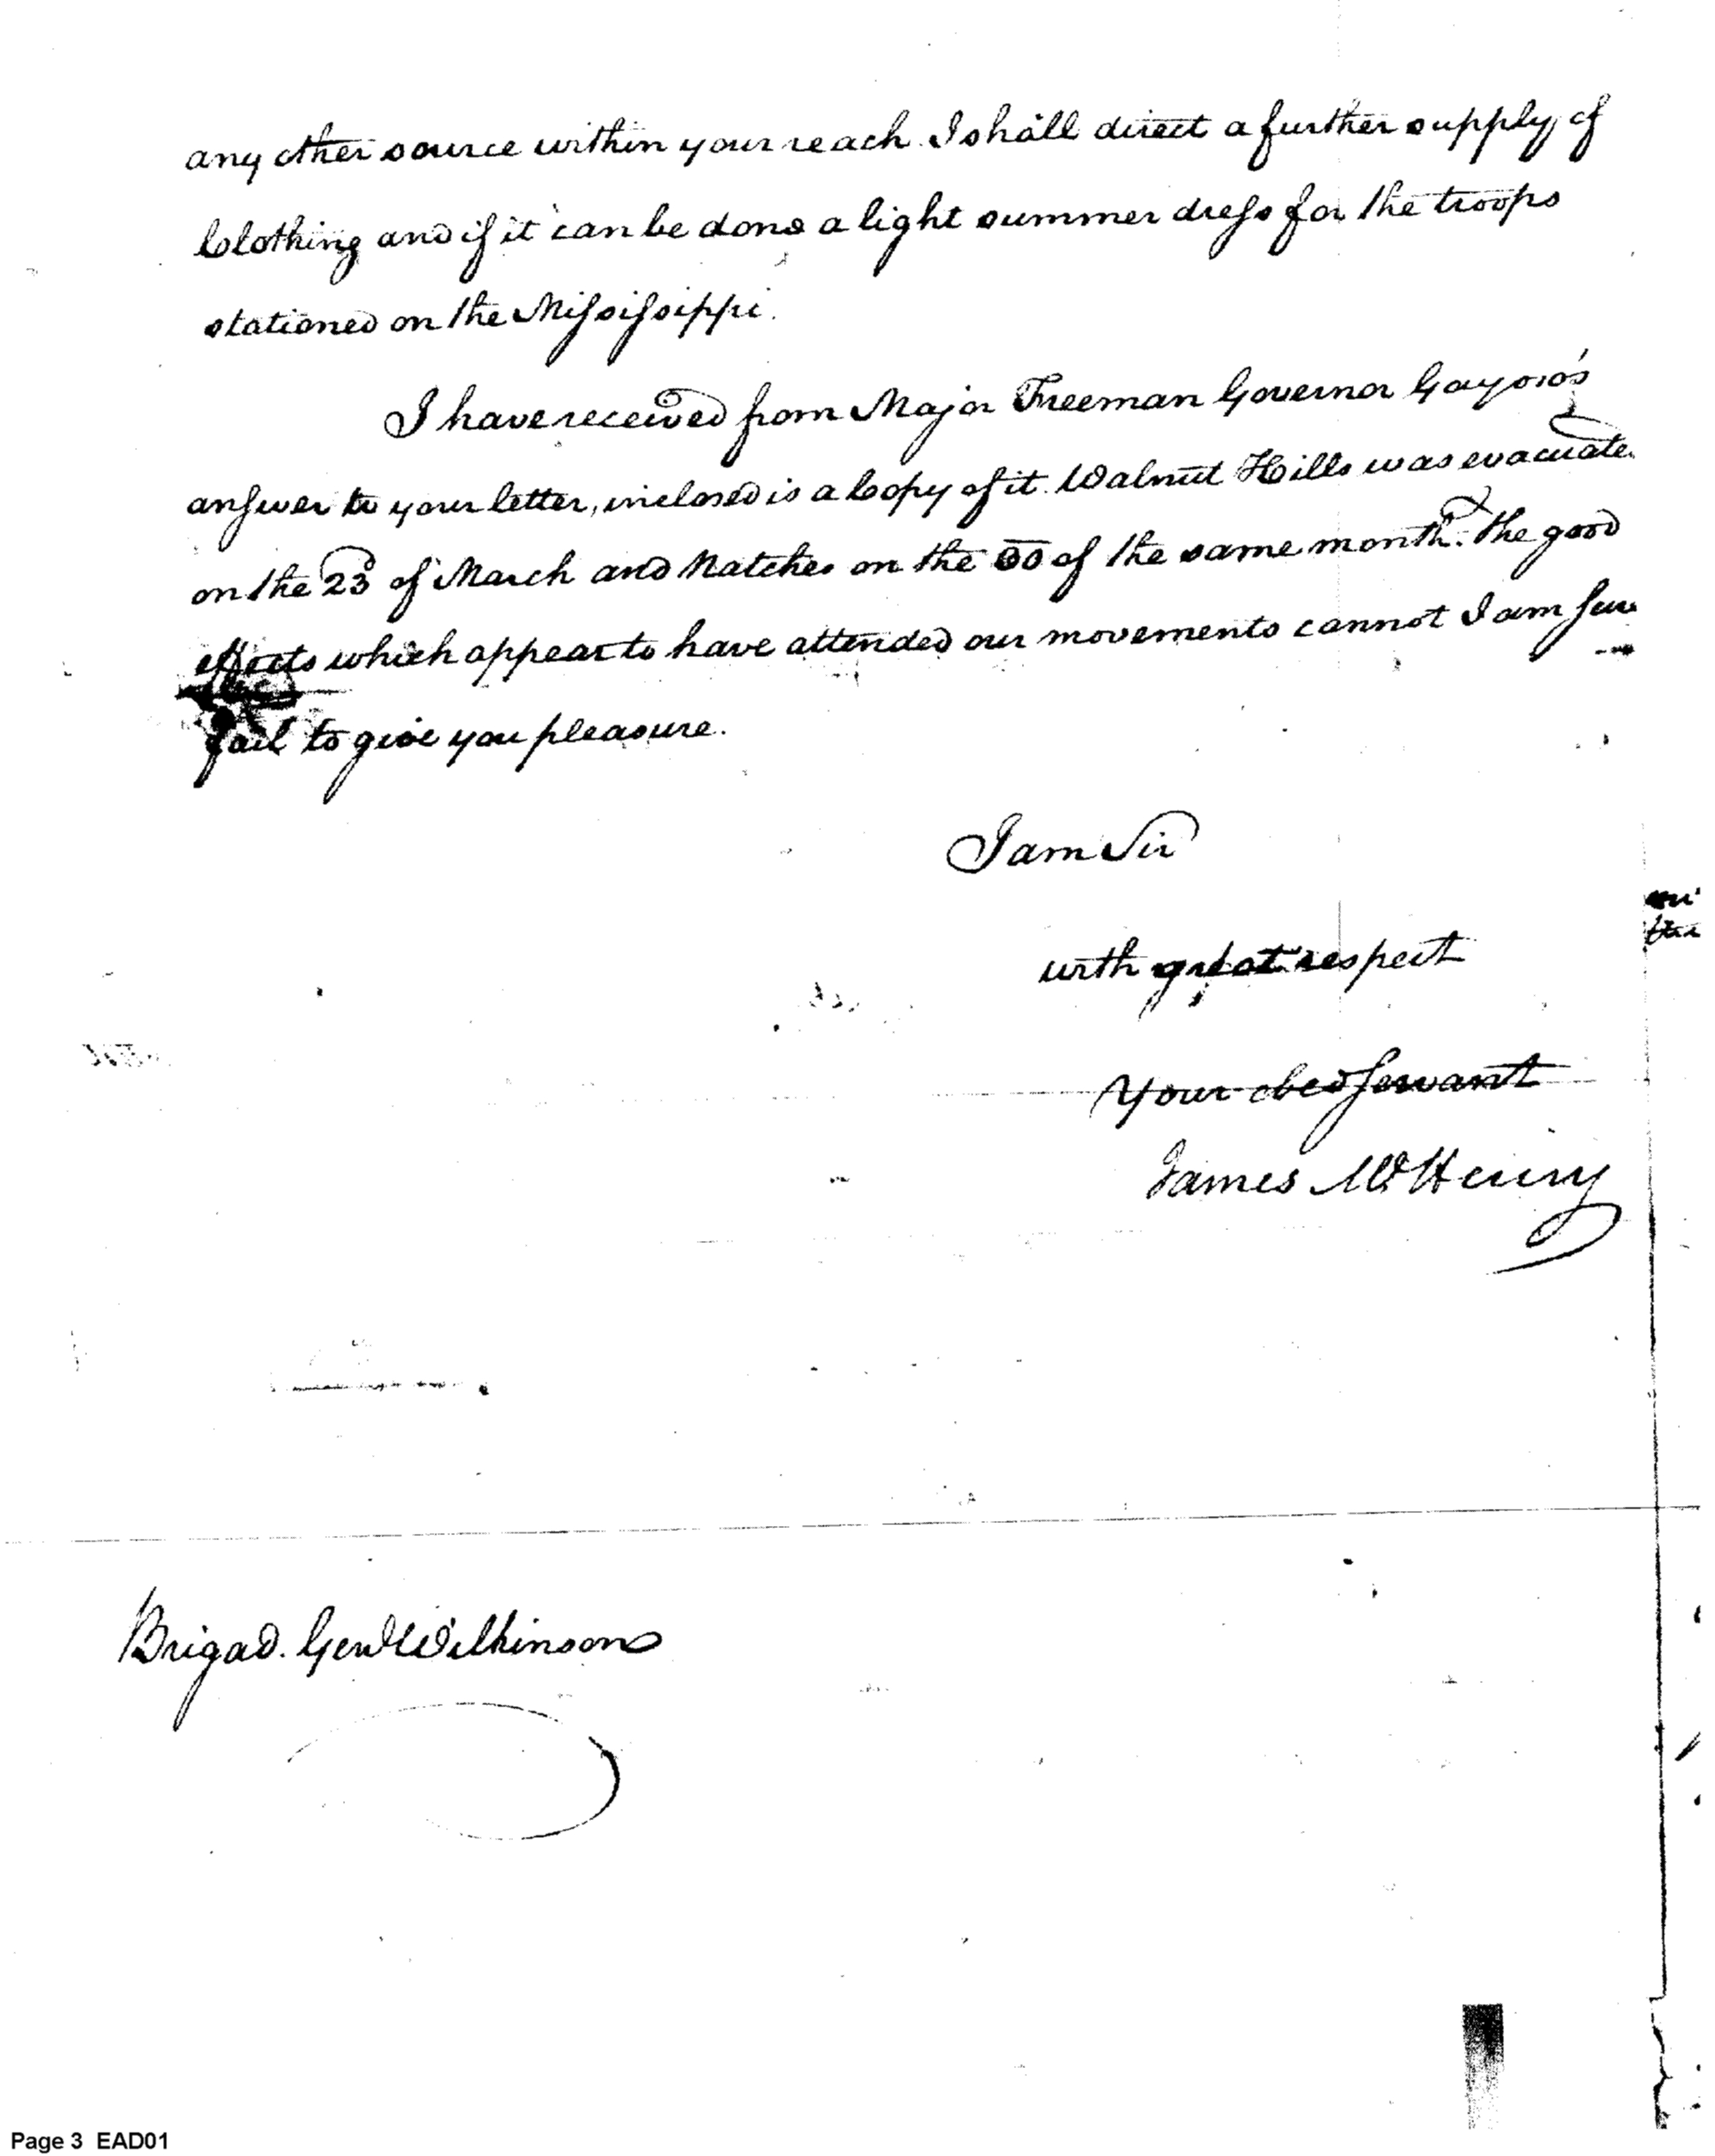 any other source within your reach. I shall direct a further supply of
Clothing and if it can be done a light summer dress for the troops
stationed on the Mississippi.
I have received from Major Freeman Governor Gayoso's
answer to your letter, inclosed is a Copy of it. Walnut Hills was evacuated
on the 23d of March and Natches on the 30 of the same month. The good
effects which appear to have attended our movements cannot I am sure
fail to give you pleasure.
I am Sir
with great respect
Your obed servant
James McHenry
Brigad. Genl Wilkinson
Page 3 EAD01